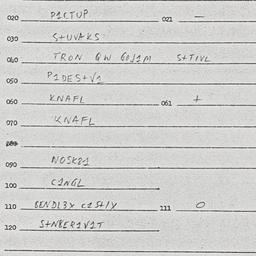 020 P1CTUP 021 —
030 S+UVAKS
040 TRON QW GOJ1M S+TIVL
050 P1DES+V1
060 KNAFL 061 +
070 KNAFL
080
090 NOSK81
100 C1NGL
110 BENDL3X C1S+/Y 111 O
120 S+N8ER1V1T